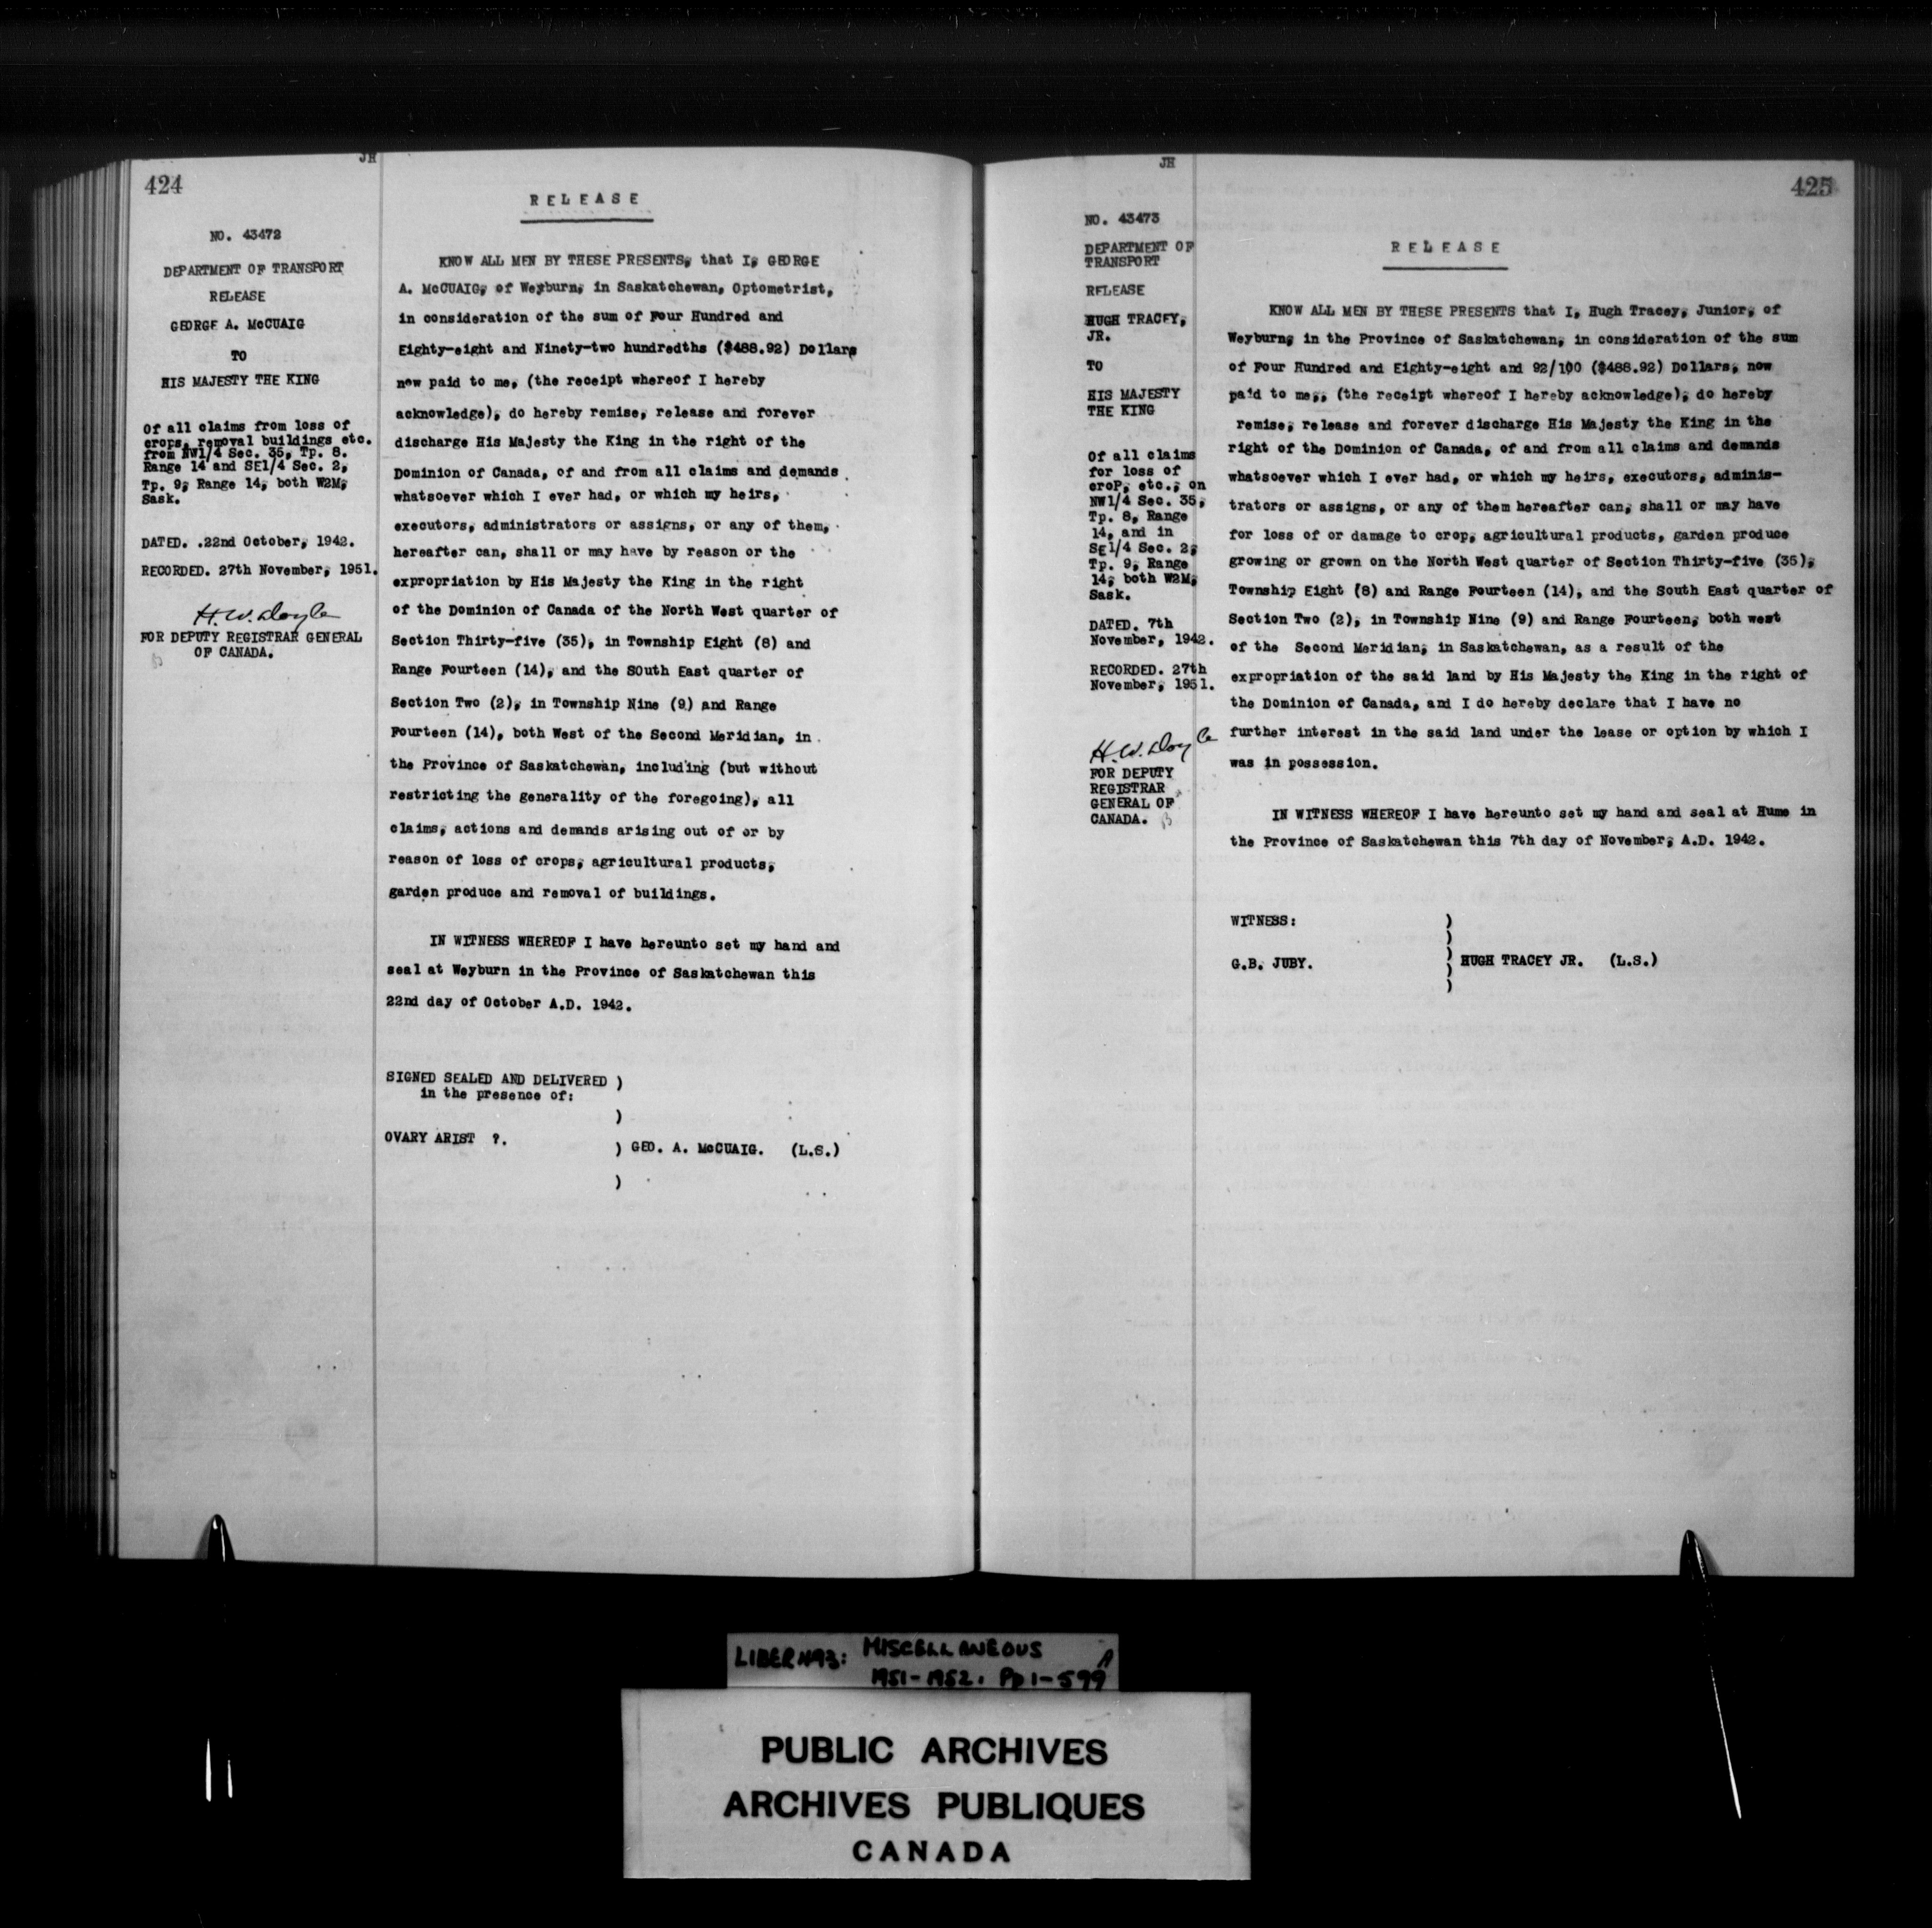 JH
424
NO. 43472
DEPARTMENT OF TRANSPORT
RELEASE
GEORGE A. McCUAIG
TO
HIS MAJESTY THE KING
Of all claims from loss of
crops, removal buildings etc.
from NW1/4 Sec. 35, Tp. 8.
Range 14 and SE1/4 Sec. 2,
Tp. 9, Range 14, both W2M,
Sask.
DATED. .22nd October, 1942.
RECORDED. 27th November, 1951.
H.W. Doyle
FOR DEPUTY REGISTRAR GENERAL
OF CANADA.
RELEASE
KNOW ALL MEN BY THESE PRESENTS, that I, GEORGE
A. McCUAIG, of Weyburn, in Saskatchewan, Optometrist,
in consideration of the sum of Four Hundred and
Eighty-eight and Ninety-two hundredths ($488.92) Dollars
now paid to me, (the receipt whereof I hereby
acknowledge), do hereby remise, release and forever
discharge His Majesty the King in the right of the
Dominion of Canada, of and from all claims and demands
whatsoever which I ever had, or which my heirs,
executors, administrators or assigns, or any of them,
hereafter can, shall or may have by reason or the
expropriation by His Majesty the King in the right
of the Dominion of Canada of the North West quarter of
Section Thirty-five (35), in Township Eight (8) and
Range Fourteen (14), and the SOuth East quarter of
Section Two (2), in Township Nine (9) and Range
Fourteen (14), both West of the Second Meridian, in
the Province of Saskatchewan, including (but without
restricting the generality of the foregoing), all
claims, actions and demands arising out of or by
reason of loss of crops, agricultural products,
garden produce and removal of buildings.
IN WITNESS WHEREOF I have hereunto set my hand and
seal at Weyburn in the Province of Saskatchewan this
22nd day of October A.D. 1942.
SIGNED SEALED AND DELIVERED )
in the presence of:
)
OVARY ARIST ?.
) GEO. A. McCUAIG. (L.S.)
)
JH
425
NO. 43473
DEPARTMENT OF
TRANSPORT
RELEASE
HUGH TRACEY,
JR.
TO
HIS MAJESTY
THE KING
Of all claims
for loss of
croP, etc., on
NW1/4 Sec. 35,
Tp. 8, Range
14, and in
SE1/4 Sec. 2,
Tp. 9, Range
14, both W2M,
Sask.
DATED. 7th
November, 1942.
RECORDED. 27th
November, 1951.
H.W. Doyle
FOR DEPUTY
REGISTRAR
GENERAL OF
CANADA.
RELEASE
KNOW ALL MEN BY THESE PRESENTS that I, Hugh Tracey, Junior, of
Weyburn, in the Province of Saskatchewan, in consideration of the sum
of Four Hundred and Eighty-eight and 92/100 ($488.92) Dollars, now
paid to me,, (the receipt whereof I hereby acknowledge), do hereby
remise, release and forever discharge His Majesty the King in the
right of the Dominion of Canada, of and from all claims and demands
whatsoever which I ever had, or which my heirs, executors, adminis-
trators or assigns, or any of them hereafter can, shall or may have
for loss of or damage to crop, agricultural products, garden produce
growing or grown on the North West quarter of Section Thirty-five (35),
Township Eight (8) and Range Fourteen (14), and the South East quarter of
Section Two (2), in Township Nine (9) and Range Fourteen, both west
of the Second Meridian, in Saskatchewan, as a result of the
expropriation of the said land by His Majesty the King in the right of
the Dominion of Canada, and I do hereby declare that I have no
further interest in the said land under the lease or option by which I
was in possession.
IN WITNESS WHEREOF I have hereunto set my hand and seal at Hume in
the Province of Saskatchewan this 7th day of November, A.D. 1942.
WITNESS: )
)
G.B. JUBY. ) HUGH TRACEY JR. (L.S.)
)
)
LIBER 493: MISCELLANEOUS A
1951-1952. Pp 1-599
PUBLIC ARCHIVES
ARCHIVES PUBLIQUES
CANADA